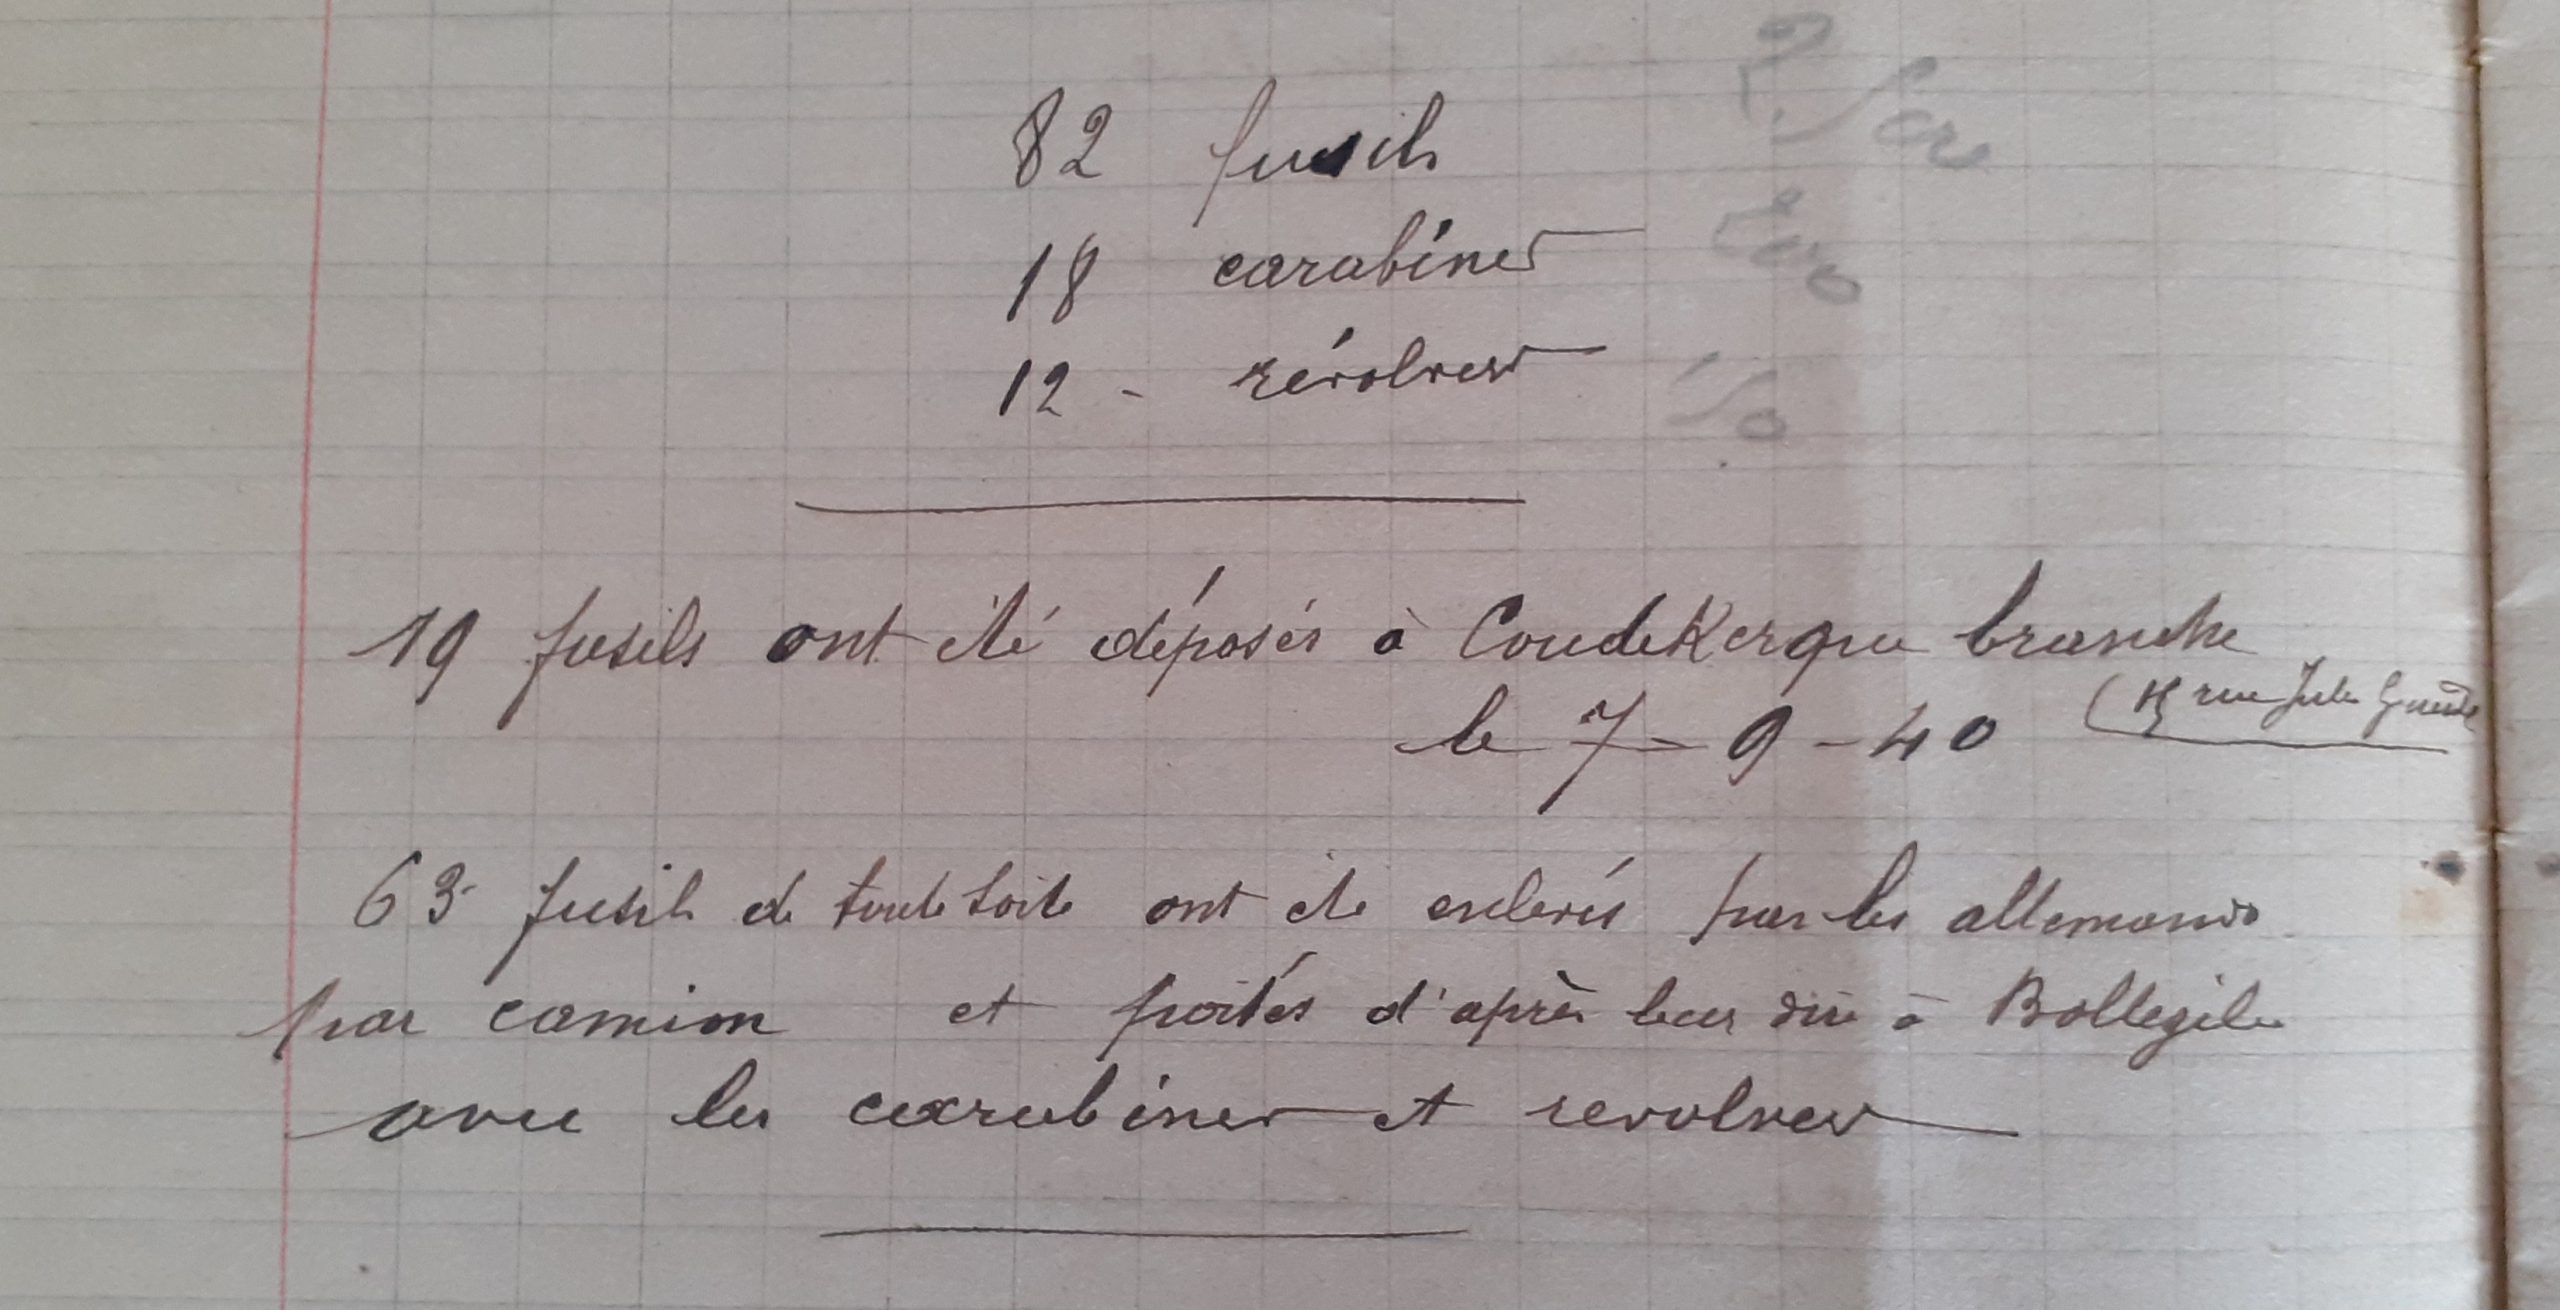 82 fusils
18 carabines
12 - révolvers
19 fusils ont été déposés à CoudeKerque branche
le 7-9-40 ( rue Jules Guesde
63 fusils de toute sorte ont été enlevés par les allemands
par camion et portés d'après leur dire à Bollezeele
avec les carabines et revolvers